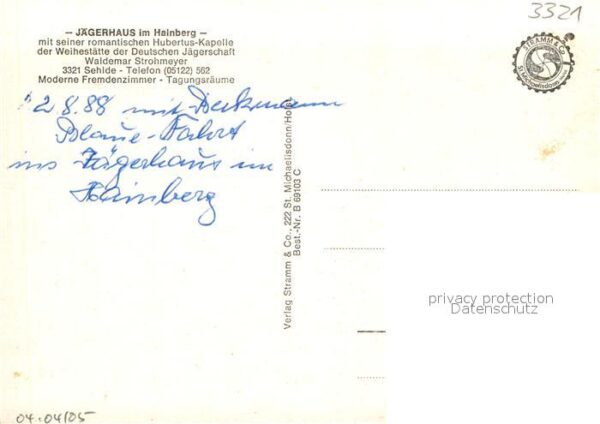 3321
– JÄGERHAUS im Hainberg –
mit seiner romantischen Hubertus-Kapelle
der Weihestätte der Deutschen Jägerschaft
Waldemar Strohmeyer
3321 Sehlde - Telefon (05122) 562
Moderne Fremdenzimmer - Tagungsräume
STRAMM & Co.
St. Michaelisdonn
2.8.88 mit
Blaue-Fahrt
ins Jägerhaus im
Hainberg
Verlag Stramm & Co., 222 St. Michaelisdonn/Holst.
Best.-Nr. B 69103 C
privacy protection
Datenschutz
04.04/05